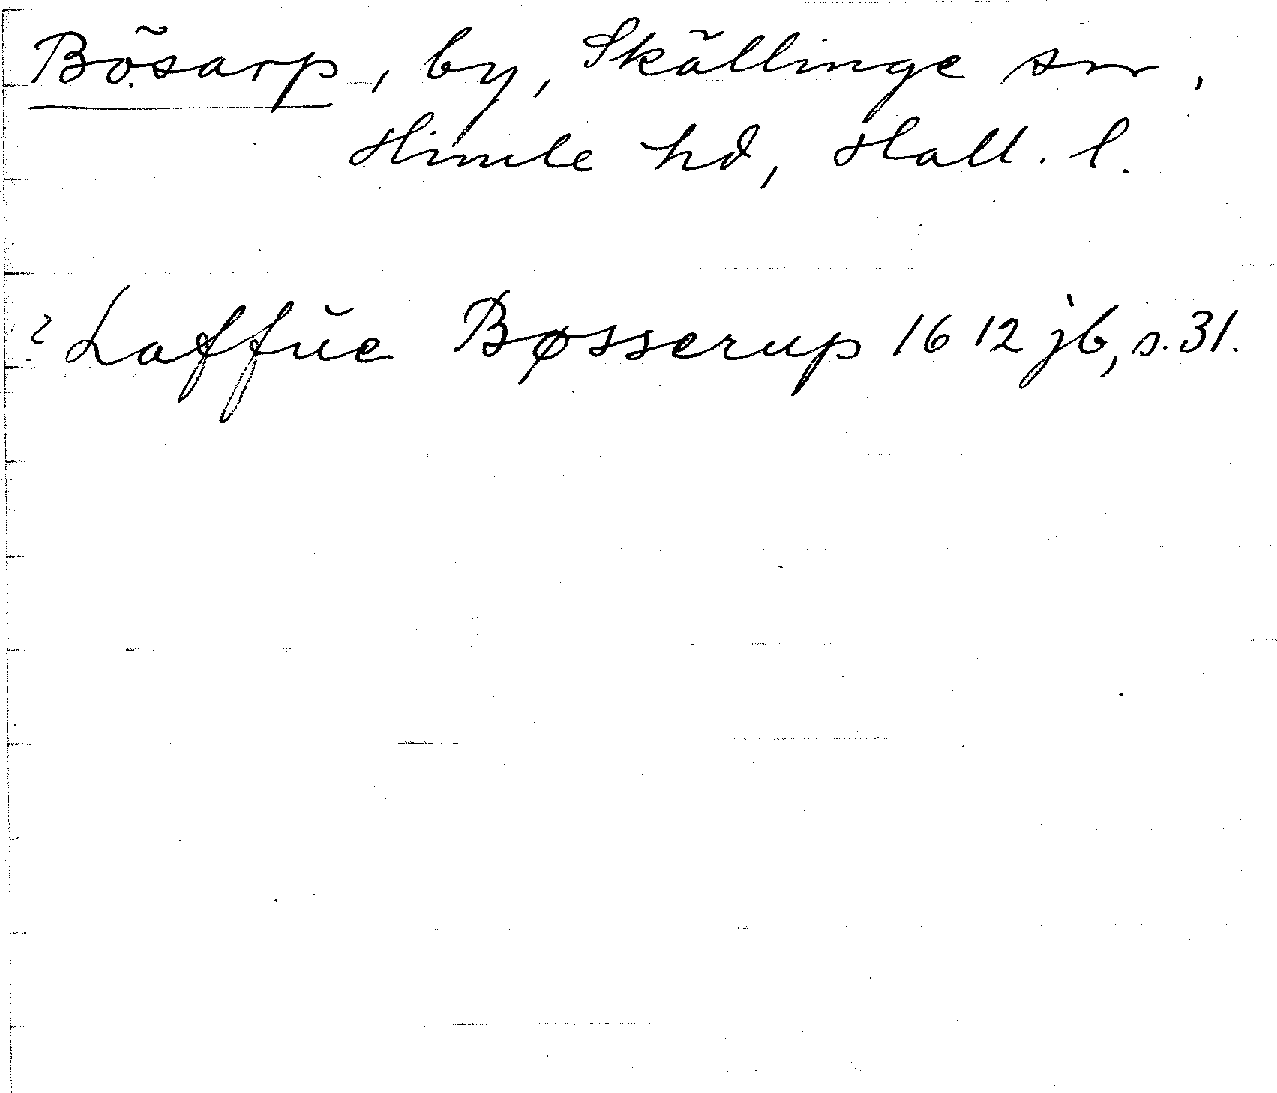 Bösarp, by, Skällinge sn,
Himle hd, Hall. l.
? Laffue Bøsserup 1612 jb, s. 31.